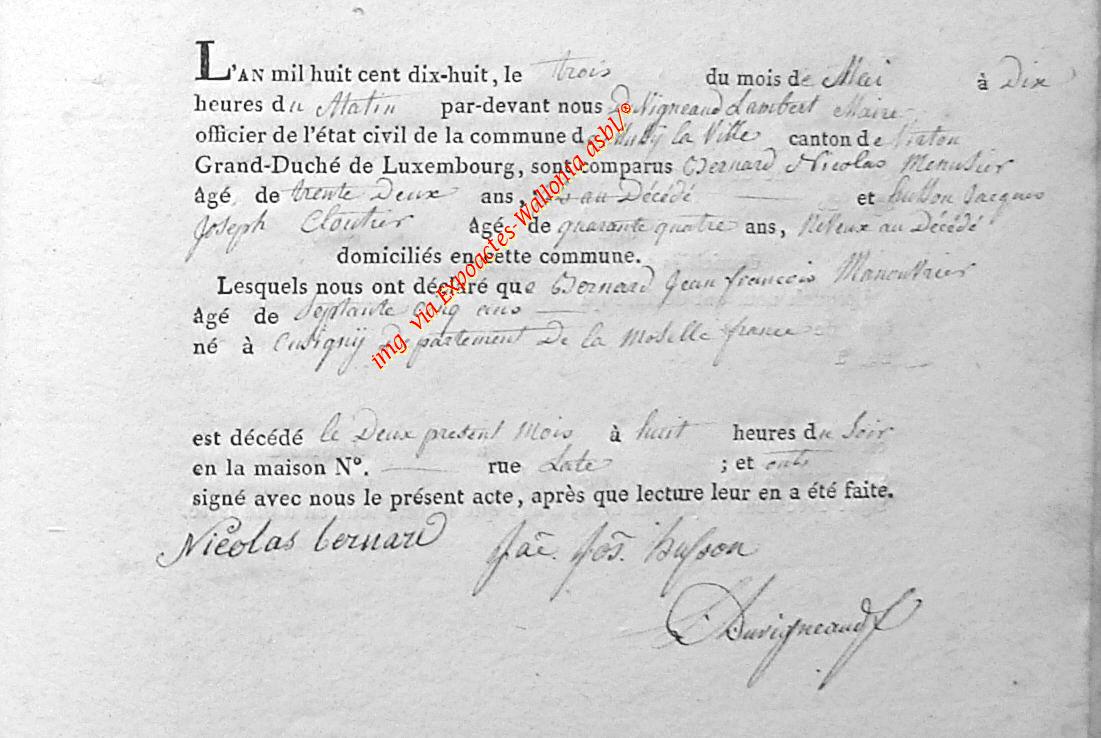 L'AN mil huit cent dix-huit, le trois du mois de Mai à Dix
heures du Matin par-devant nous Duvigneaud Lambert Maire
officier de l'état civil de la commune de la Ville canton de Virton
Grand-Duché de Luxembourg, sont comparus Bernard Nicolas Menusier
âgé de trente Deux ans, au Décédé et husson Jacques
Joseph Cloutier âgé de quarante quatre ans, Neveux au Décédé
domiciliés en cette commune.
Lesquels nous ont déclaré que Bernard Jean francois Manouvrier
âgé de Septante Cinq ans
né à Cutigny Departement De la Moselle france
est décédé le Deux present Mois à huit heures du Soir
en la maison N°. rue Late ; et onts
signé avec nous le présent acte, après que lecture leur en a été faite.
Nicolas bernard Jac. Jos. husson
Duvigneaud
img via Expoactes-Wallonia asbl/®